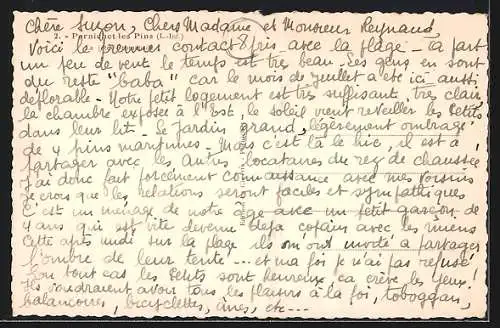 Chère Suzon, Chers Madame et Monsieur Reynaud
2. - Pornichet les Pins (L.-Inf.)
Voici le premier contact pris avec la plage - à part
un peu de vent le temps est très beau - Les gens en sont
du reste "baba" car le mois de juillet a été ici aussi
déplorable - Notre petit logement est très suffisant, très clair,
la chambre exposée à l'Est, le soleil vient réveiller les petits
dans leur lit - Le Jardin grand, légèrement ombragé
de 4 pins maritimes - Mais c'est là le hic, il est à
partager avec les autres locataires du rez de chaussée
J'ai donc fait forcément connaissance avec mes voisins
Je crois que les relations seront faciles et sympathiques
C'est un ménage de notre âge avec un petit garçon de
4 ans qui est vite devenu déjà copain avec les miens
Cette après midi sur la plage ils m'ont invité à partager
l'ombre de leur tente... et ma foi je n'ai pas refusé
En tout cas les petits sont heureux ça crève les yeux!
Ils voudraient avoir tous les plaisirs à la fois, toboggan,
balançoires, bicyclettes, ânes, etc ...